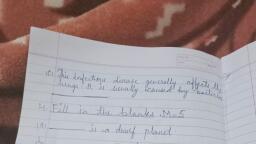 This infectious disease generally affects the
lungs. It is usually caused by bacteria
Fill in the blanks M=5
is a dwarf planet